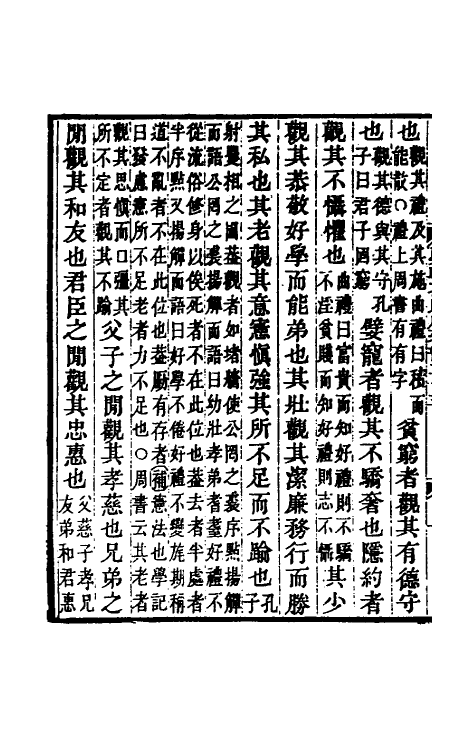 也觀其禮及其施曲禮曰積而能散○禮上周書有有字貧窮者觀其有德守
也觀其德與其守孔子曰君子固窮嬖寵者觀其不驕奢也隱約者
觀其不懾懼也曲禮曰富貴而知好禮則不驕不淫貧賤而知好禮則志不懾其少
觀其恭敬好學而能弟也其壯觀其潔廉務行而勝
其私也其老觀其意憲慎強其所不足而不踰也孔子
射矍相之圃蓋觀者如堵牆使公罔之裘序點揚觶
而語公罔之裘揚觶而語曰幼壯孝弟耆耋好禮不
從流俗修身以俟死者不在此位也蓋去者半處者
半序點又揚觶而語曰好學不倦好禮不變旄期稱
道不亂者不在此位也蓋有存者補憲法也學記
曰發慮憲所不足老者力不足也○周書云其老者
觀其思慎而口彊其所不定者觀其不踰父子之閒觀其孝慈也兄弟之
閒觀其和友也君臣之閒觀其忠惠也父慈子孝兄友弟和君惠